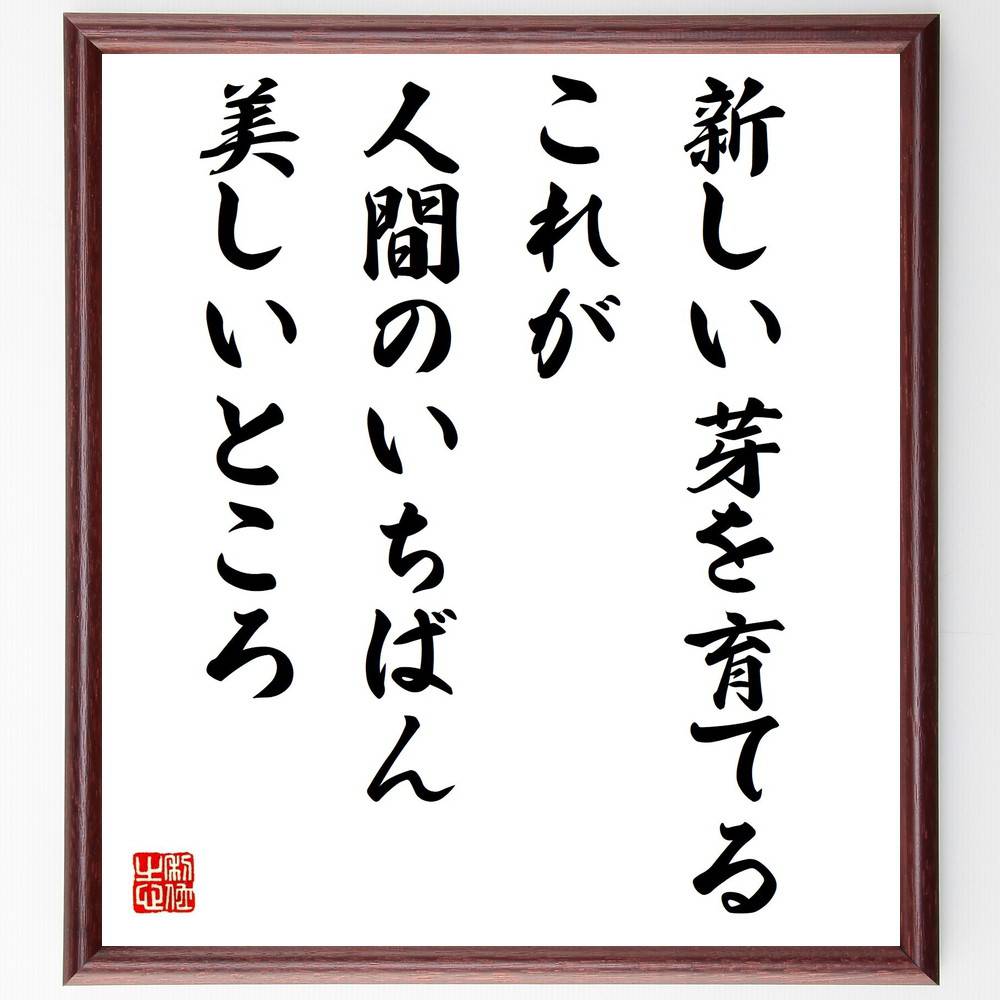 新しい芽を育てる
これが
人間のいちばん
美しいところ